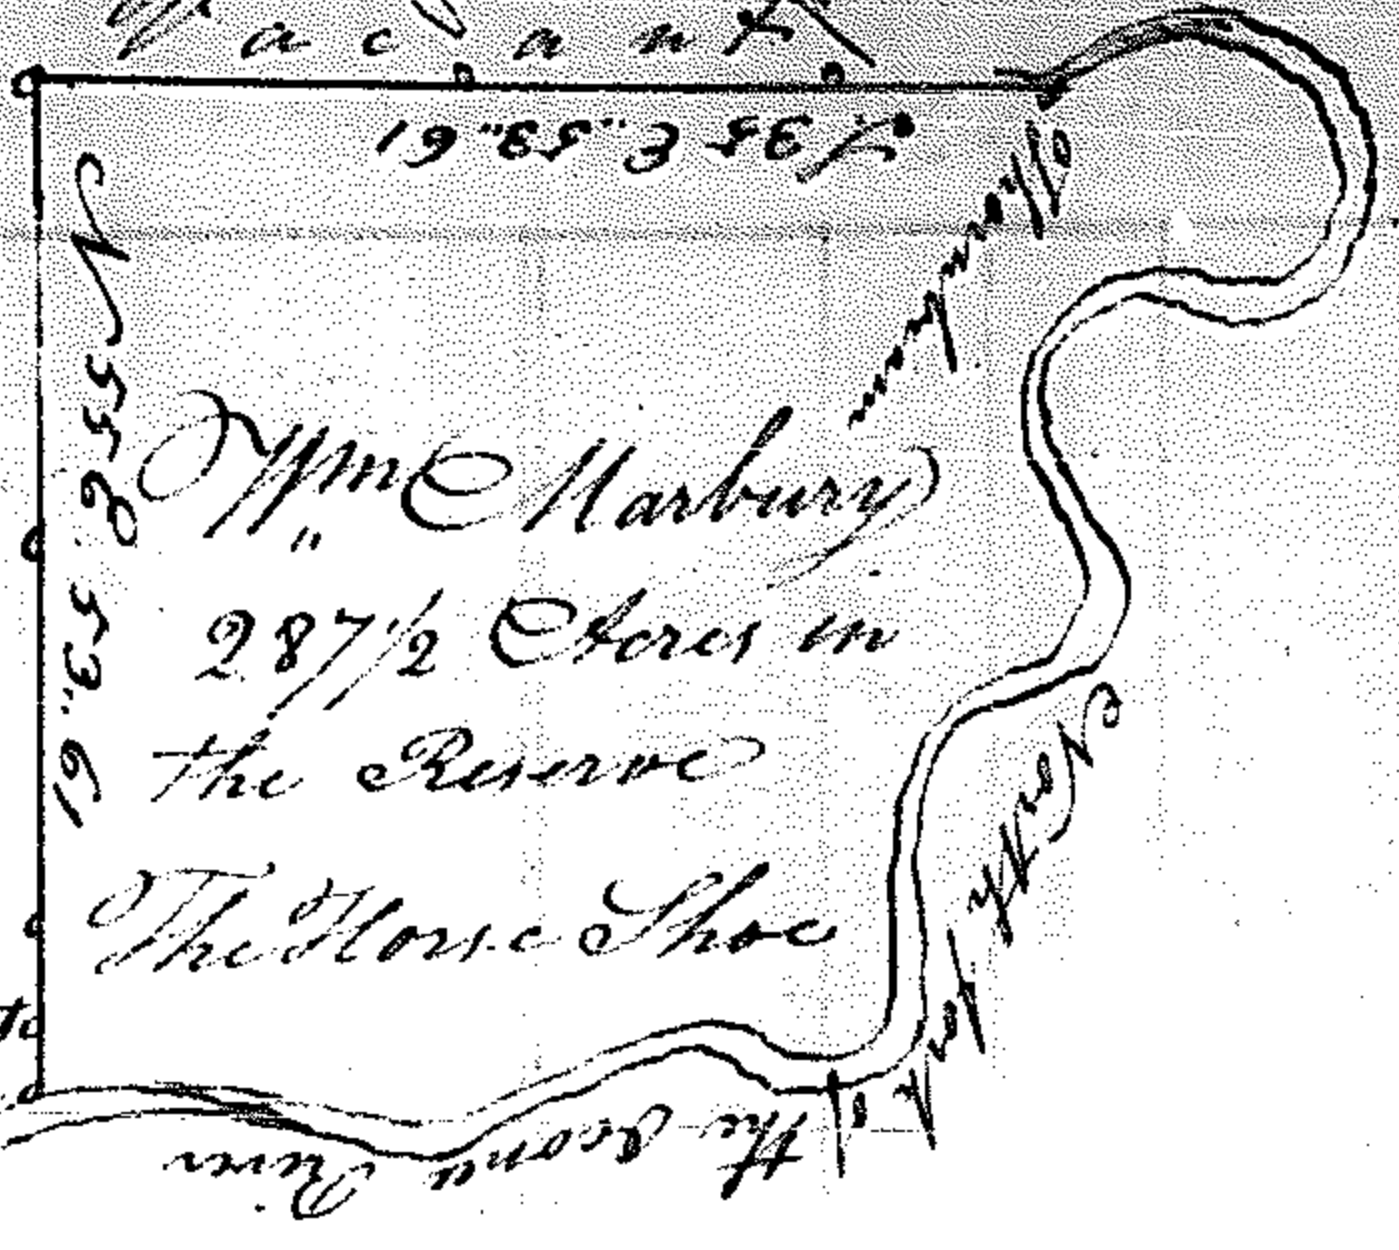 Vacant
S 35 E. 53.. 61
N 55 E 53.. 61
Wm Marbury
287 1/2 Acres in
the Reserve
The Horse Shoe
North fork of
the Oconu River